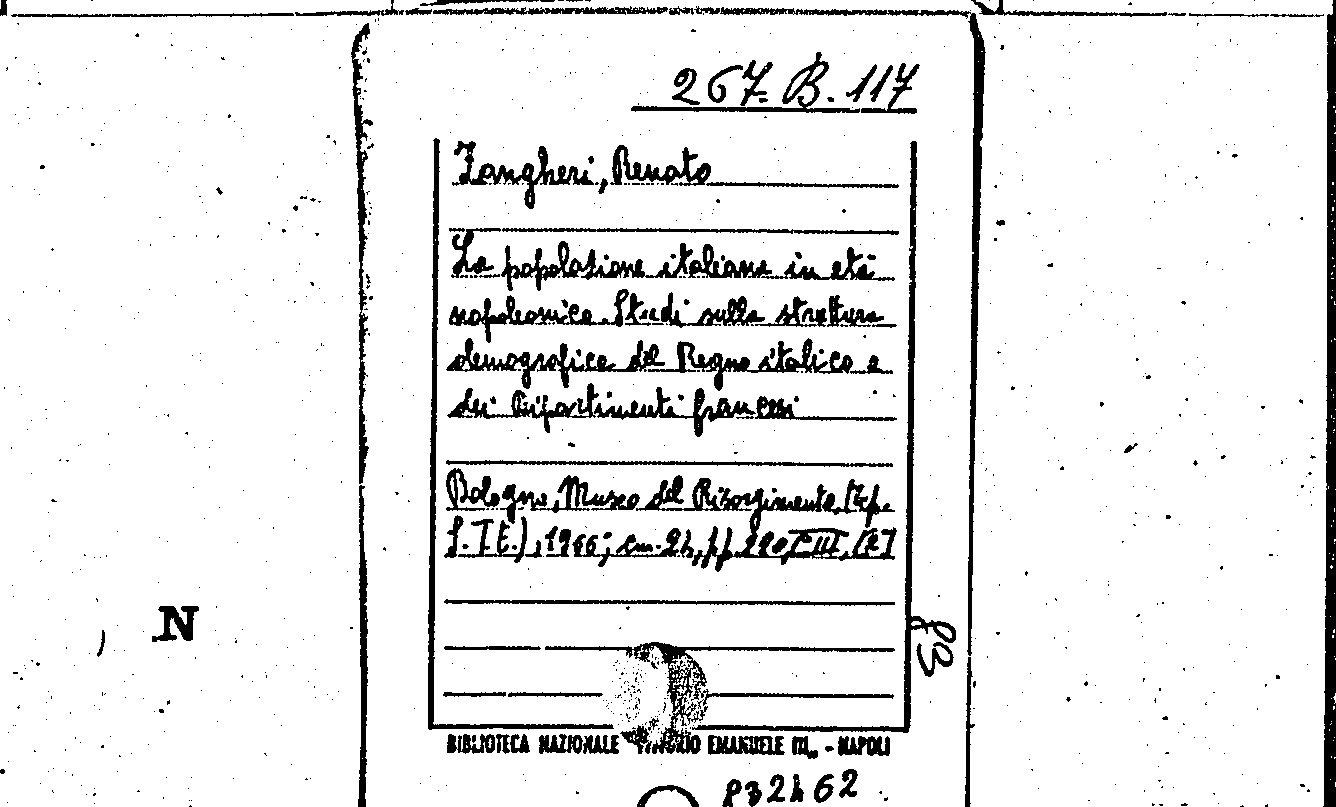 267. B. 117
Zangheri, Renato
La popolazione italiana in età
napoleonica. Studi sulla struttura
demografica del Regno italico e
dei Dipartimenti francesi
Bologna, Museo del Risorgimento, (Tip.
S.T.E.), 1966; cm. 24, pp. 220, CIII, [2]
N
BIBLIOTECA NAZIONALE VITTORIO EMANUELE III„ - NAPOLI
832462